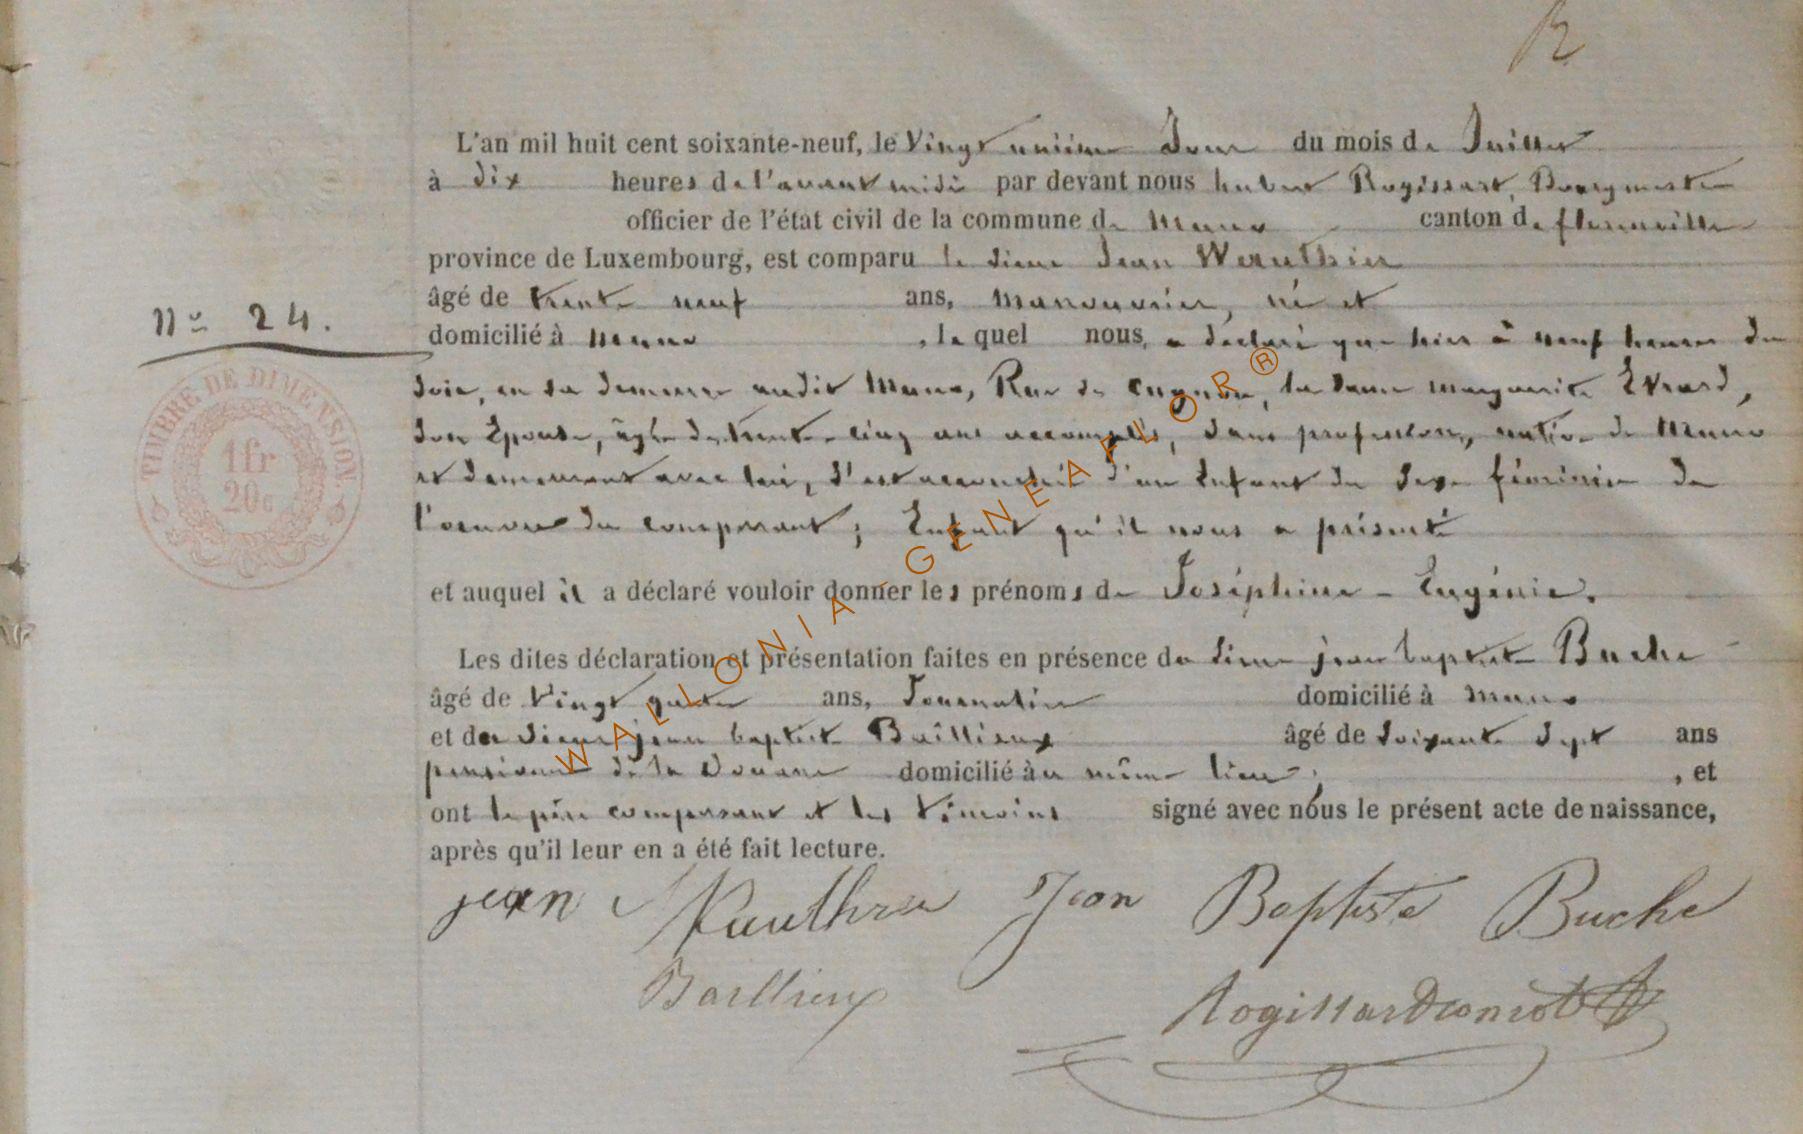 R
L'an mil huit cent soixante-neuf, le Vingt unième Jour du mois de Juillet
à dix heures de l'avant midi par devant nous hubert Rogissart, Bourgmestre
officier de l'état civil de la commune de Muno canton de florenville
province de Luxembourg, est comparu le sieur Jean Wauthier
âgé de trente neuf ans, manouvrier, né et
domicilié à Muno, lequel nous a déclaré que hier à neuf heures du
Soir, en sa demeure audit Muno, Rue de la dame marguerite Evrard,
Son Epouse, âgée de trente-cinq ans accomplis, Sans profession, native de Muno
et demeurant avec lui, S'est accouchée d'un Enfant du Sexe féminin de
l'oeuvre du comparant; Enfant qu'il nous a présenté
et auquel il a déclaré vouloir donner les prénoms de Joséphine - Eugénie.
N° 24.
TIMBRE DE DIMENSION
1 fr
20 c
Les dites déclaration et présentation faites en présence de sieur jean baptiste Buche
âgé de Vingt quatre ans, Journalier domicilié à Muno
et de Sieur jean baptiste Baillieux âgé de Soixante Sept ans
pensionné de la Douane domicilié au même lieu;, et
ont le père comparant et les témoins signé avec nous le présent acte de naissance,
après qu'il leur en a été fait lecture.
jean Wauthier Jean Baptiste Buche
Baillieux
WALLONIA-GENEAFLOR®